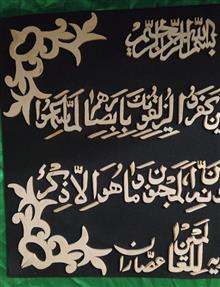 بسم الله الرحمن الرحيم
كفروا ليزلقونك بابصارهم لما سمعوا
انه لمجنون وما هو الا ذكر
للعالمين عصاران